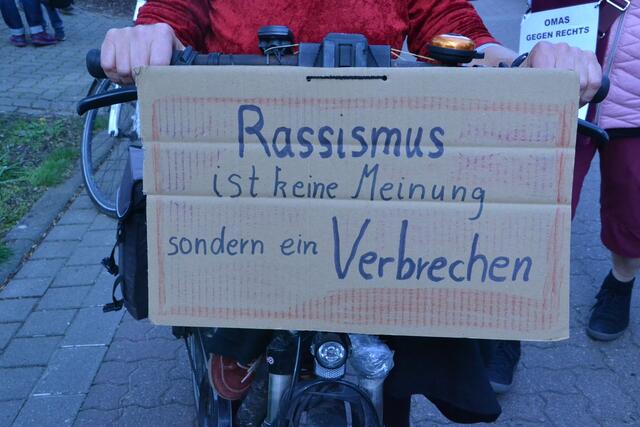 OMAS
GEGEN RECHTS
Rassismus
ist keine Meinung
sondern ein Verbrechen